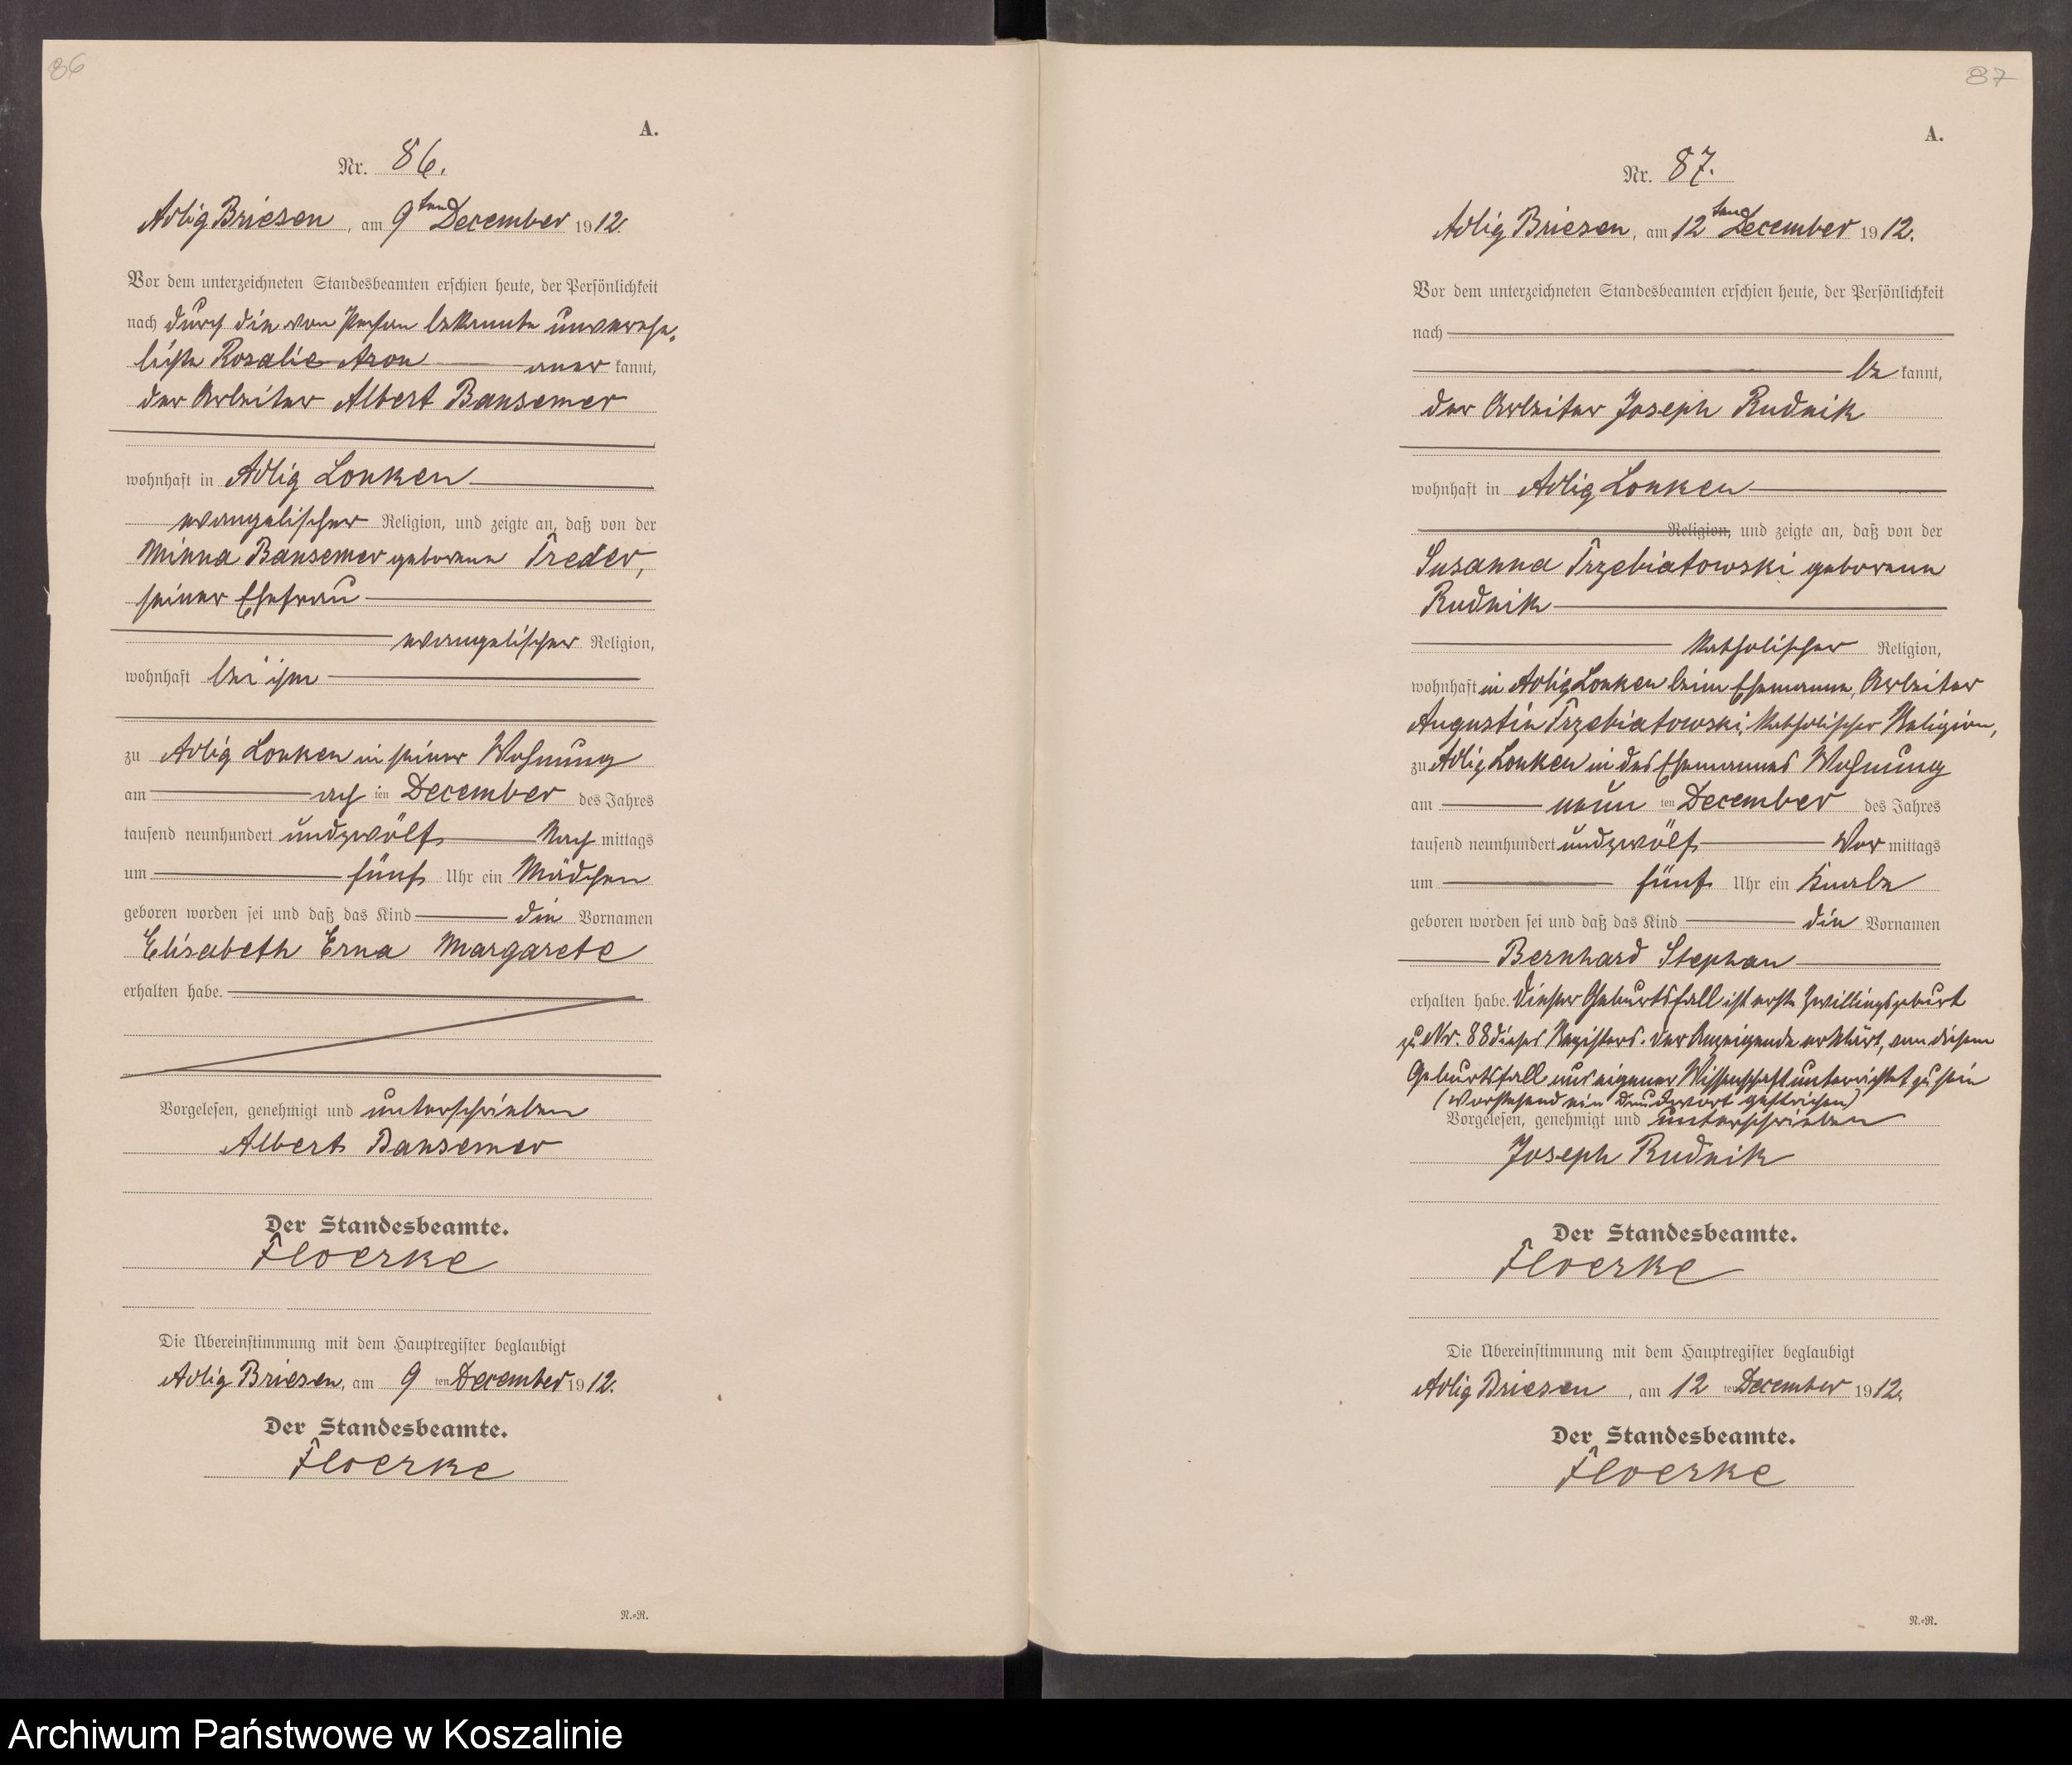 86
A.
Nr. 86.
Adlig Briesen, am 9ten December 1912.
Vor dem unterzeichneten Standesbeamten erschien heute, der Persönlichkeit
nach durch die von Person bekannte unverehe-
lichte Rosalie Aron anerkannt,
der Arbeiter Albert Bansemer
wohnhaft in Adlig Lonken
evangelischer Religion, und zeigte an, daß von der
Minna Bansemer geborene Treder,
seiner Ehefrau
evangelischer Religion,
wohnhaft bei ihm
zu Adlig Lonken in seiner Wohnung
am achten December des Jahres
tausend neunhundert undzwölf Nachmittags
um fünf Uhr ein Mädchen
geboren worden sei und daß das Kind die Vornamen
Elisabeth Erna Margarete
erhalten habe.
Vorgelesen, genehmigt und unterschrieben
Albert Bansemer
Der Standesbeamte.
Floerke
Die Übereinstimmung mit dem Hauptregister beglaubigt
Adlig Briesen, am 9ten December 1912.
Der Standesbeamte.
Floerke
N.-N.
87
A.
Nr. 87.
Adlig Briesen, am 12ten December 1912.
Vor dem unterzeichneten Standesbeamten erschien heute, der Persönlichkeit
nach
bekannt,
der Arbeiter Joseph Rudnik
wohnhaft in Adlig Lonken
Religion, und zeigte an, daß von der
Susanna Trzebiatowski geborene
Rudnik
katholischer Religion,
wohnhaft in Adlig Lonken beim Ehemanne, Arbeiter
Augustin Trzebiatowski, katholischer Religion,
zu Adlig Lonken in des Ehemannes Wohnung
am neunten December des Jahres
tausend neunhundert undzwölf Vormittags
um fünf Uhr ein Knabe
geboren worden sei und daß das Kind die Vornamen
Bernhard Stephan
erhalten habe. Dieser Geburtsfall ist erste Zwillingsgeburt
zu Nr. 88 dieses Registers. Der Anzeigende erklärt, von diesem
Geburtsfall aus eigener Wissenschaft unterrichtet zu sein
(Vorstehend ein Druckwort gestrichen)
Vorgelesen, genehmigt und unterschrieben
Joseph Rudnik
Der Standesbeamte.
Floerke
Die Übereinstimmung mit dem Hauptregister beglaubigt
Adlig Briesen, am 12ten December 1912.
Der Standesbeamte.
Floerke
N.-N.
Archiwum Państwowe w Koszalinie